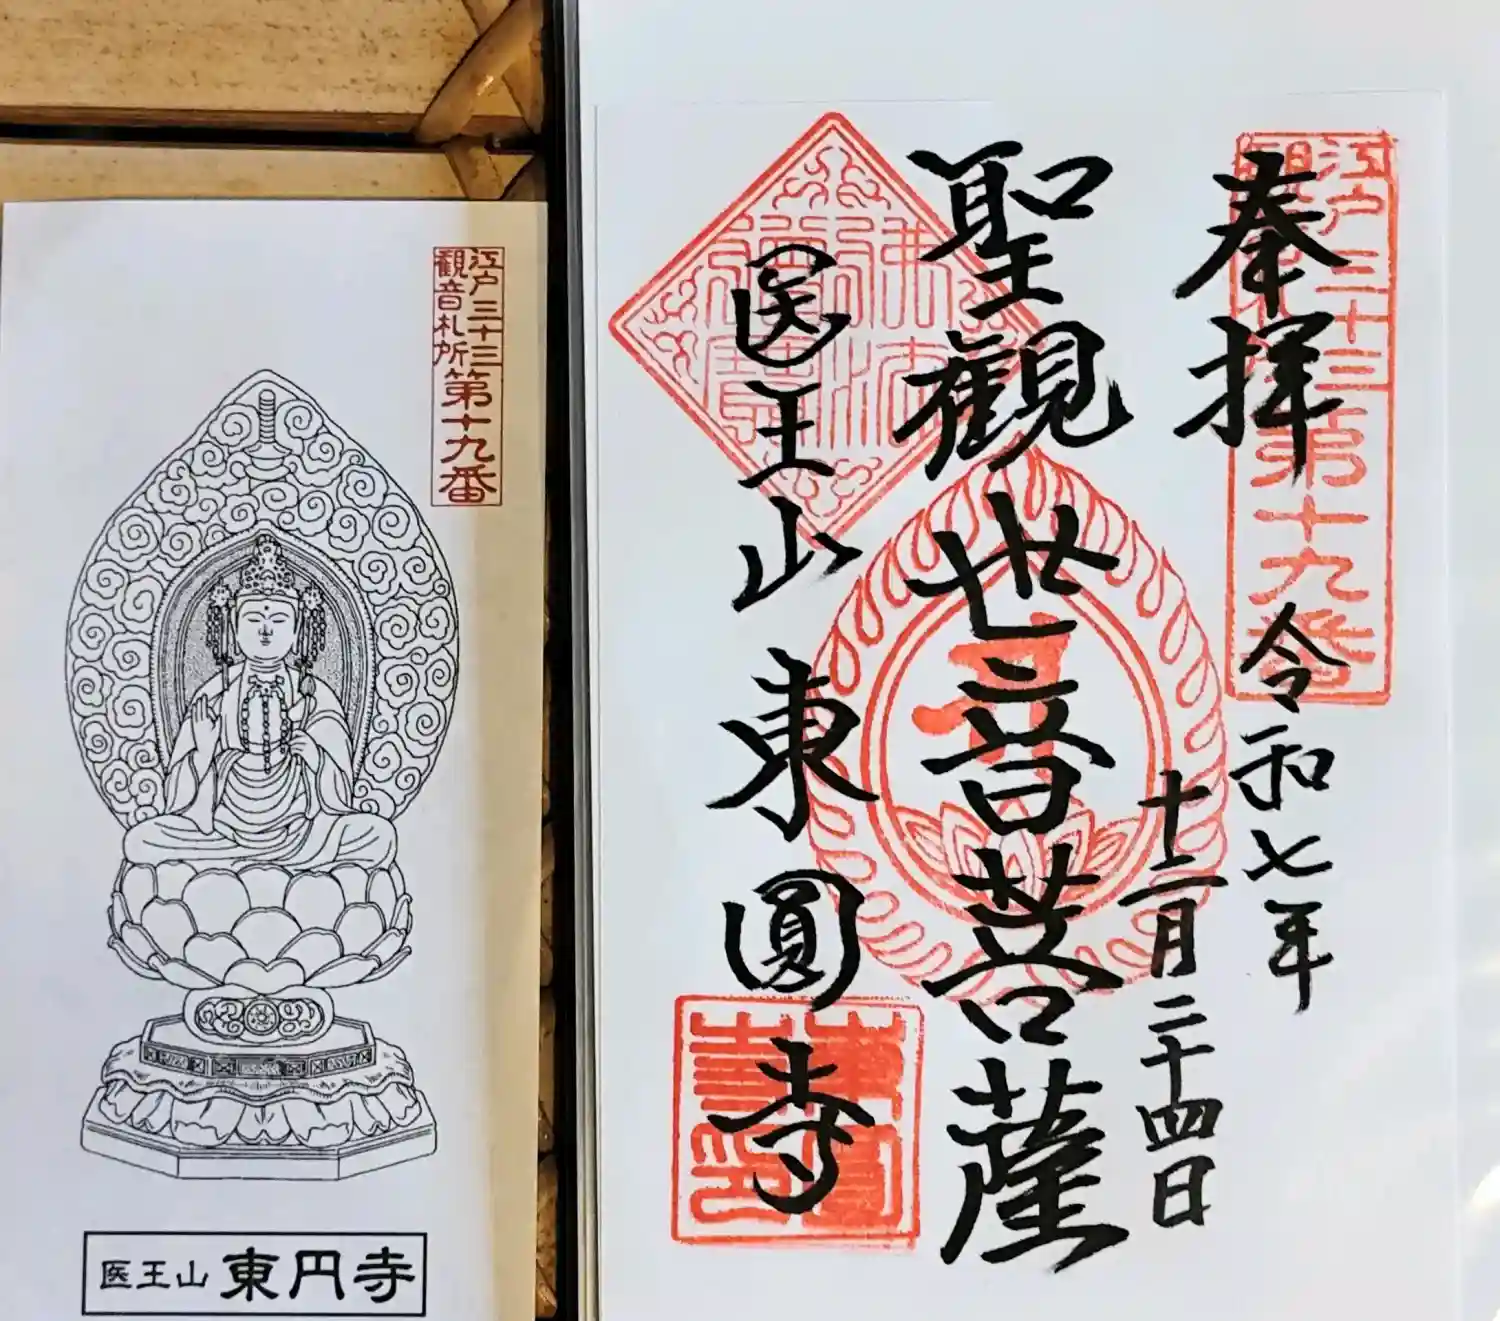 江戸三十三
観音札所
第十九番
医王山 東円寺
江戸三十三
観音札所
第十九番
奉拝
令和七年
十二月二十四日
聖觀世音菩薩
医王山 東圓寺
佛法
僧寶
東圓
寺印